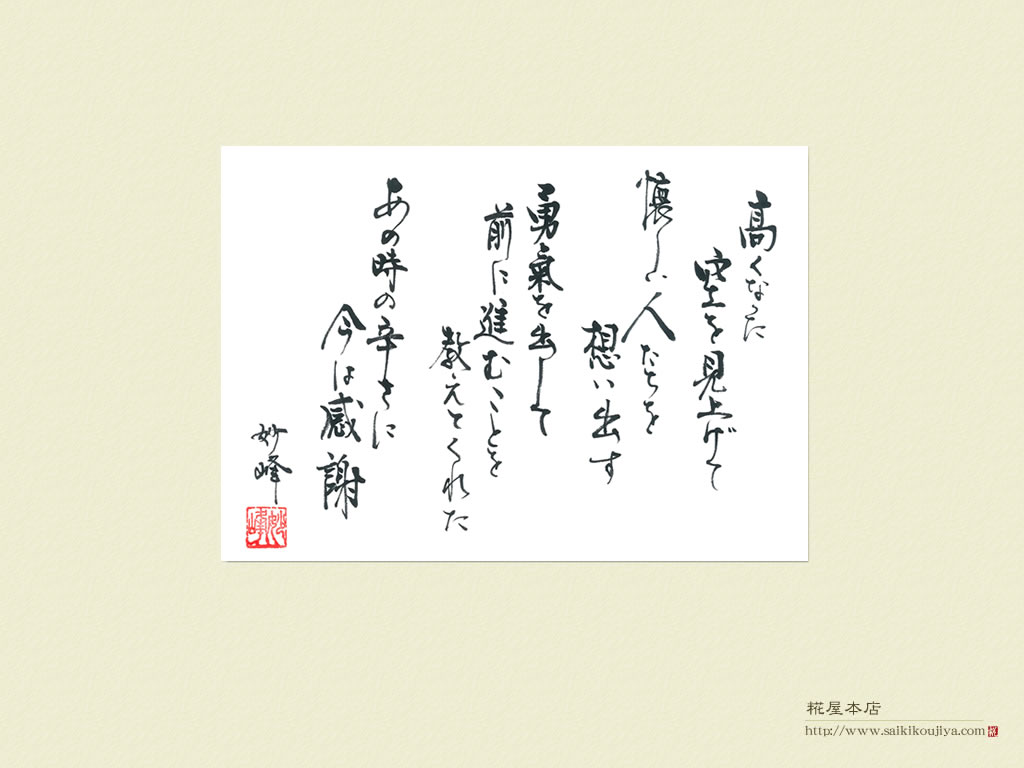 高くなった
空を見上げて
懐しい人たちを
想い出す
勇氣を出して
前に進むことを
教えてくれた
あの時の辛さに
今は感謝
妙峰
妙峰
糀屋本店
http://www.saikikoujiya.com
糀